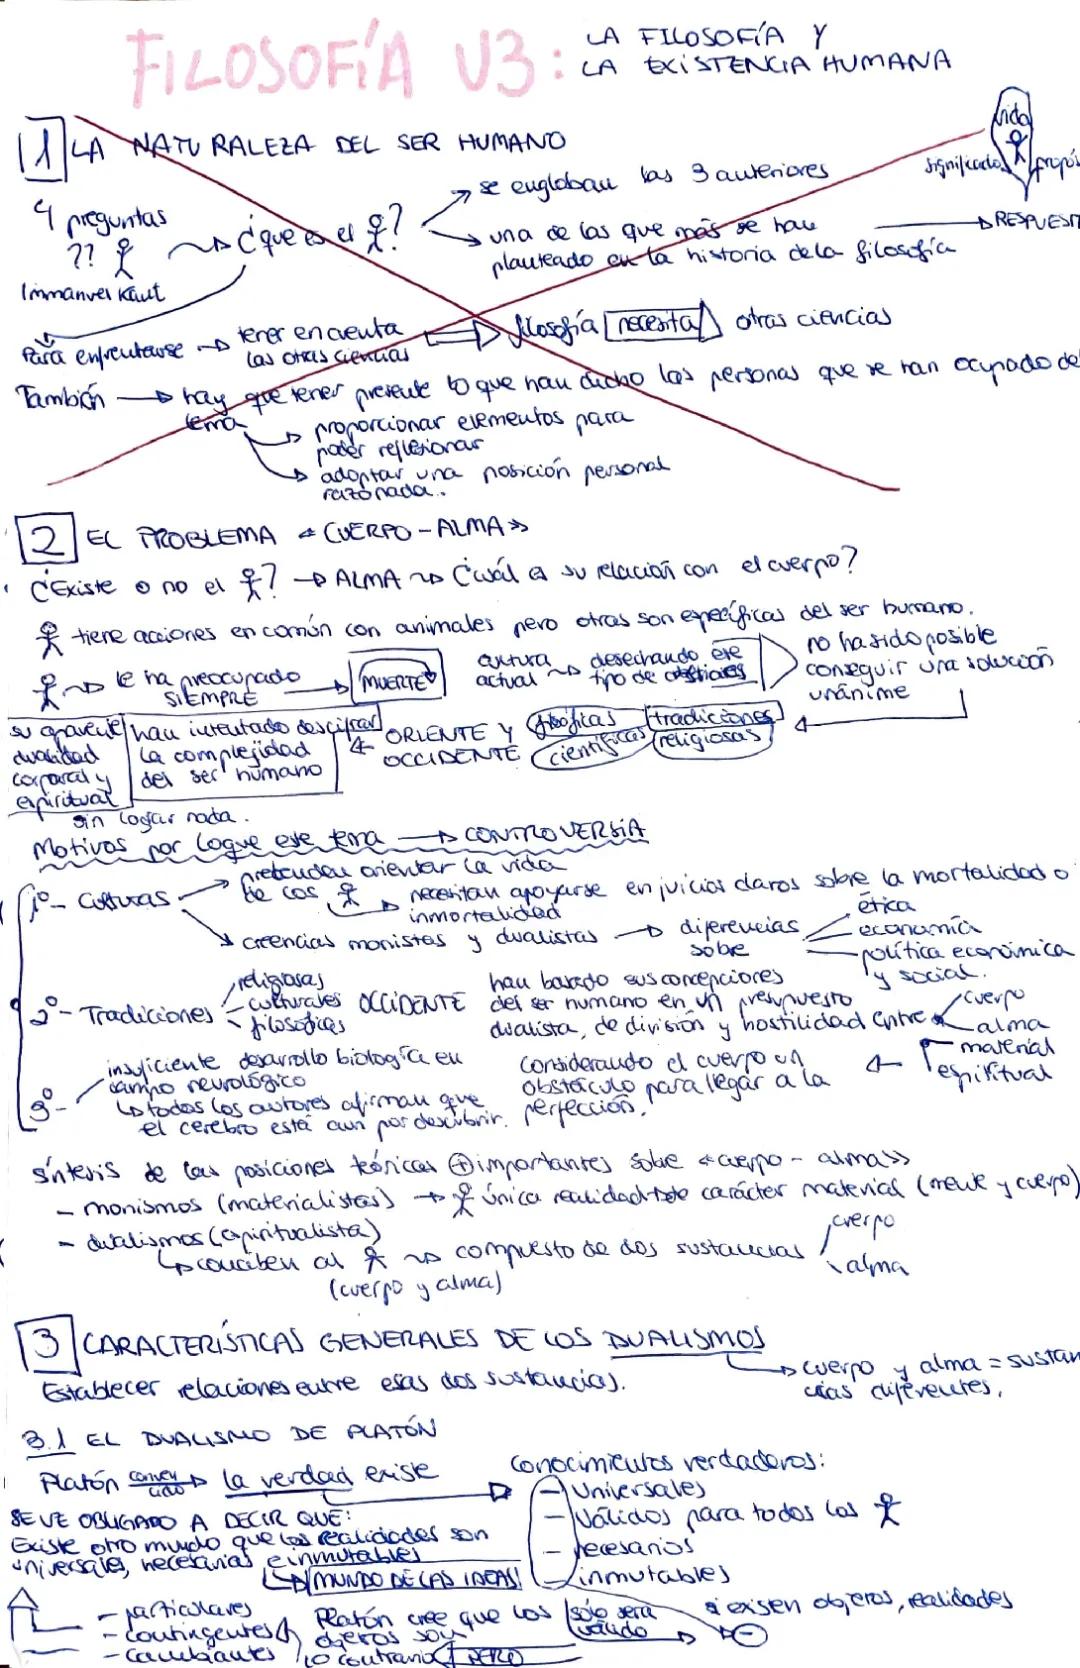 FILOSOFÍA U3: LA FILOSOFÍA Y
LA EXISTENCIA HUMANA
1 LA NATURALEZA DEL SER HUMANO
vida
significado
4 preguntas
??
Immanuel Kant
¿que es el ?
se engloban las 3 anteriores
una de las que más se han
planteado en la historia de la filosofía
Para enfrentarse
tener en cuenta
las otras ciencias
filosofía necesita otras ciencias
También hay que tener presente lo que han dicho las personas que se han ocupado del
tema
proporcionar elementos para
poder reflexionar
adoptar una posición personal
razonada..
2 EL PROBLEMA «CUERPO-ALMA»
¿Existe o no el ? ALMA ¿Cuál es su relación con el cuerpo?
tiene acciones en común con animales pero otras son específicas del ser humano.
le ha preocupado
SIEMPRE
MUERTE
cultura
actual
desechando ese
tipo de
no ha sido posible
conseguir una solución
unánime
su aparente
dualidad
corporal y
espiritual
han intentado descifrar
la complejidad
del ser humano
ORIENTE Y
OCCIDENTE
filosóficas
científicas
tradiciones
religiosas
sin lograr nada.
Motivos por loque ese tema CONTROVERSIA
1º- Culturas
pretenden orientar la vida
de los
necesitan apoyarse en juicios claros sobre la mortalidad o
inmortalidad
creencias monistas y dualistas
diferencias
sobre
ética
economía
política económica
y social.
2º- Tradiciones
religiosas
culturales
filosóficas
OCCIDENTE
han basado sus concepciones
del ser humano en un presupuesto
dualista, de división y hostilidad entre
cuerpo
alma
material
espiritual
Considerando el cuerpo un
obstáculo para llegar a la
perfección.
3º-
insuficiente desarrollo biología en
campo neurológico
todos los autores afirman que
el cerebro está aun por descubrir.
síntesis de las posiciones teóricas + importantes sobre «cuerpo - alma»
- monismos (materialistas) única realidad de carácter material (mente y cuerpo)
- dualismos (espiritualista)
conciben al compuesto de dos sustancias
(cuerpo y alma)
cuerpo
alma
3 CARACTERÍSTICAS GENERALES DE LOS DUALISMOS
cuerpo y alma = sustan
cias diferentes.
Establecer relaciones entre esas dos sustancias.
3.1 EL DUALISMO DE PLATÓN
Platón conven
cido la verdad existe
Conocimientos verdaderos:
- Universales
- Válidos para todos los
- necesarios
- inmutables
SE VE OBLIGADO A DECIR QUE:
Existe otro mundo que las realidades son
universales, necesarias e inmutables
MUNDO DE LAS IDEAS
- particulares
- contingentes
- cambiantes
Platón cree que los
objetos son
lo contrario
PERO
sólo será
válido
si existen objetos, realidades